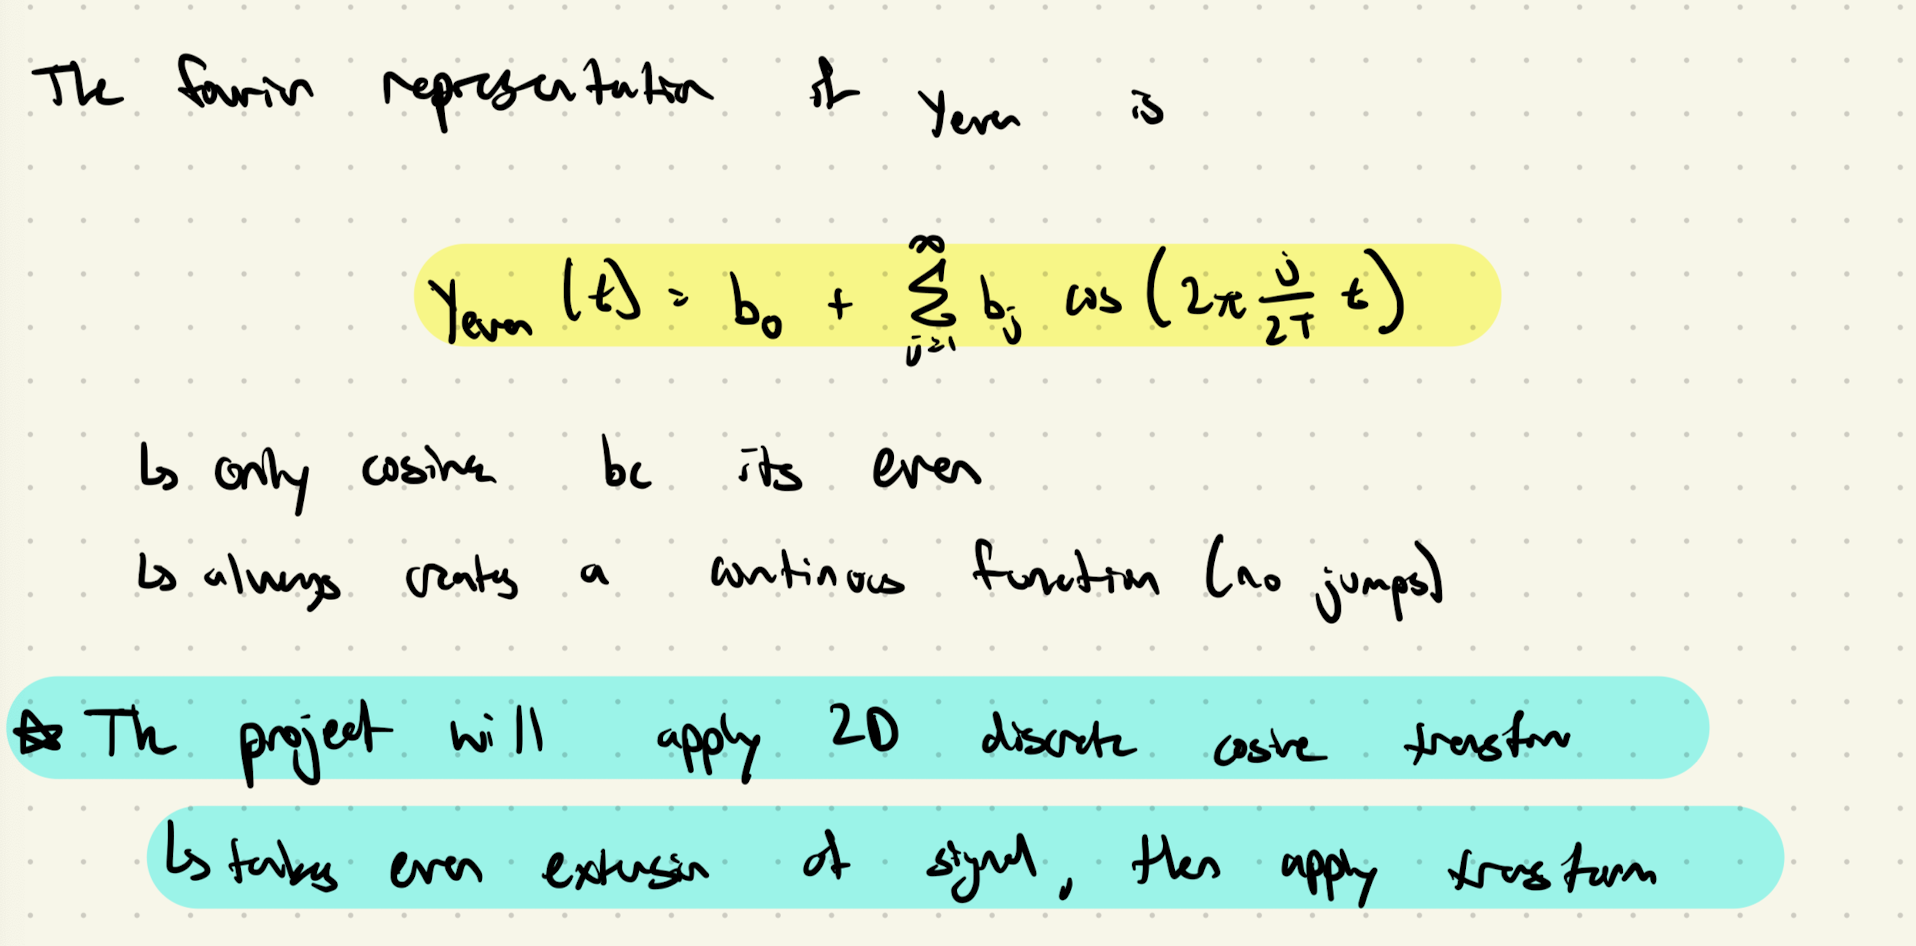 The fourier representation of y_even is
y_even (t) = b_0 + ∑_{j=1}^{∞} b_j cos (2π j/2T t)
↳ only cosine bc its even
↳ always creates a continous function (no jumps)
☆ The project will apply 2D discrete cosine transform
↳ takes even extension of signal, then apply transform